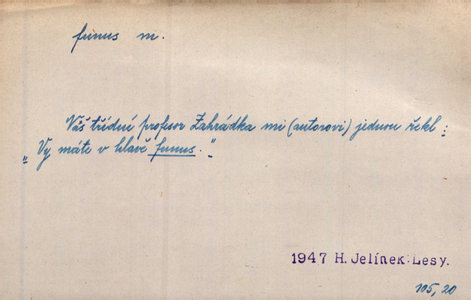 funus m.
Váš třídní profesor Zahrádka mi (autorovi) jednou řekl:
„Vy máte v hlavě funus."
1947 H. Jelínek: Lesy.
105,20